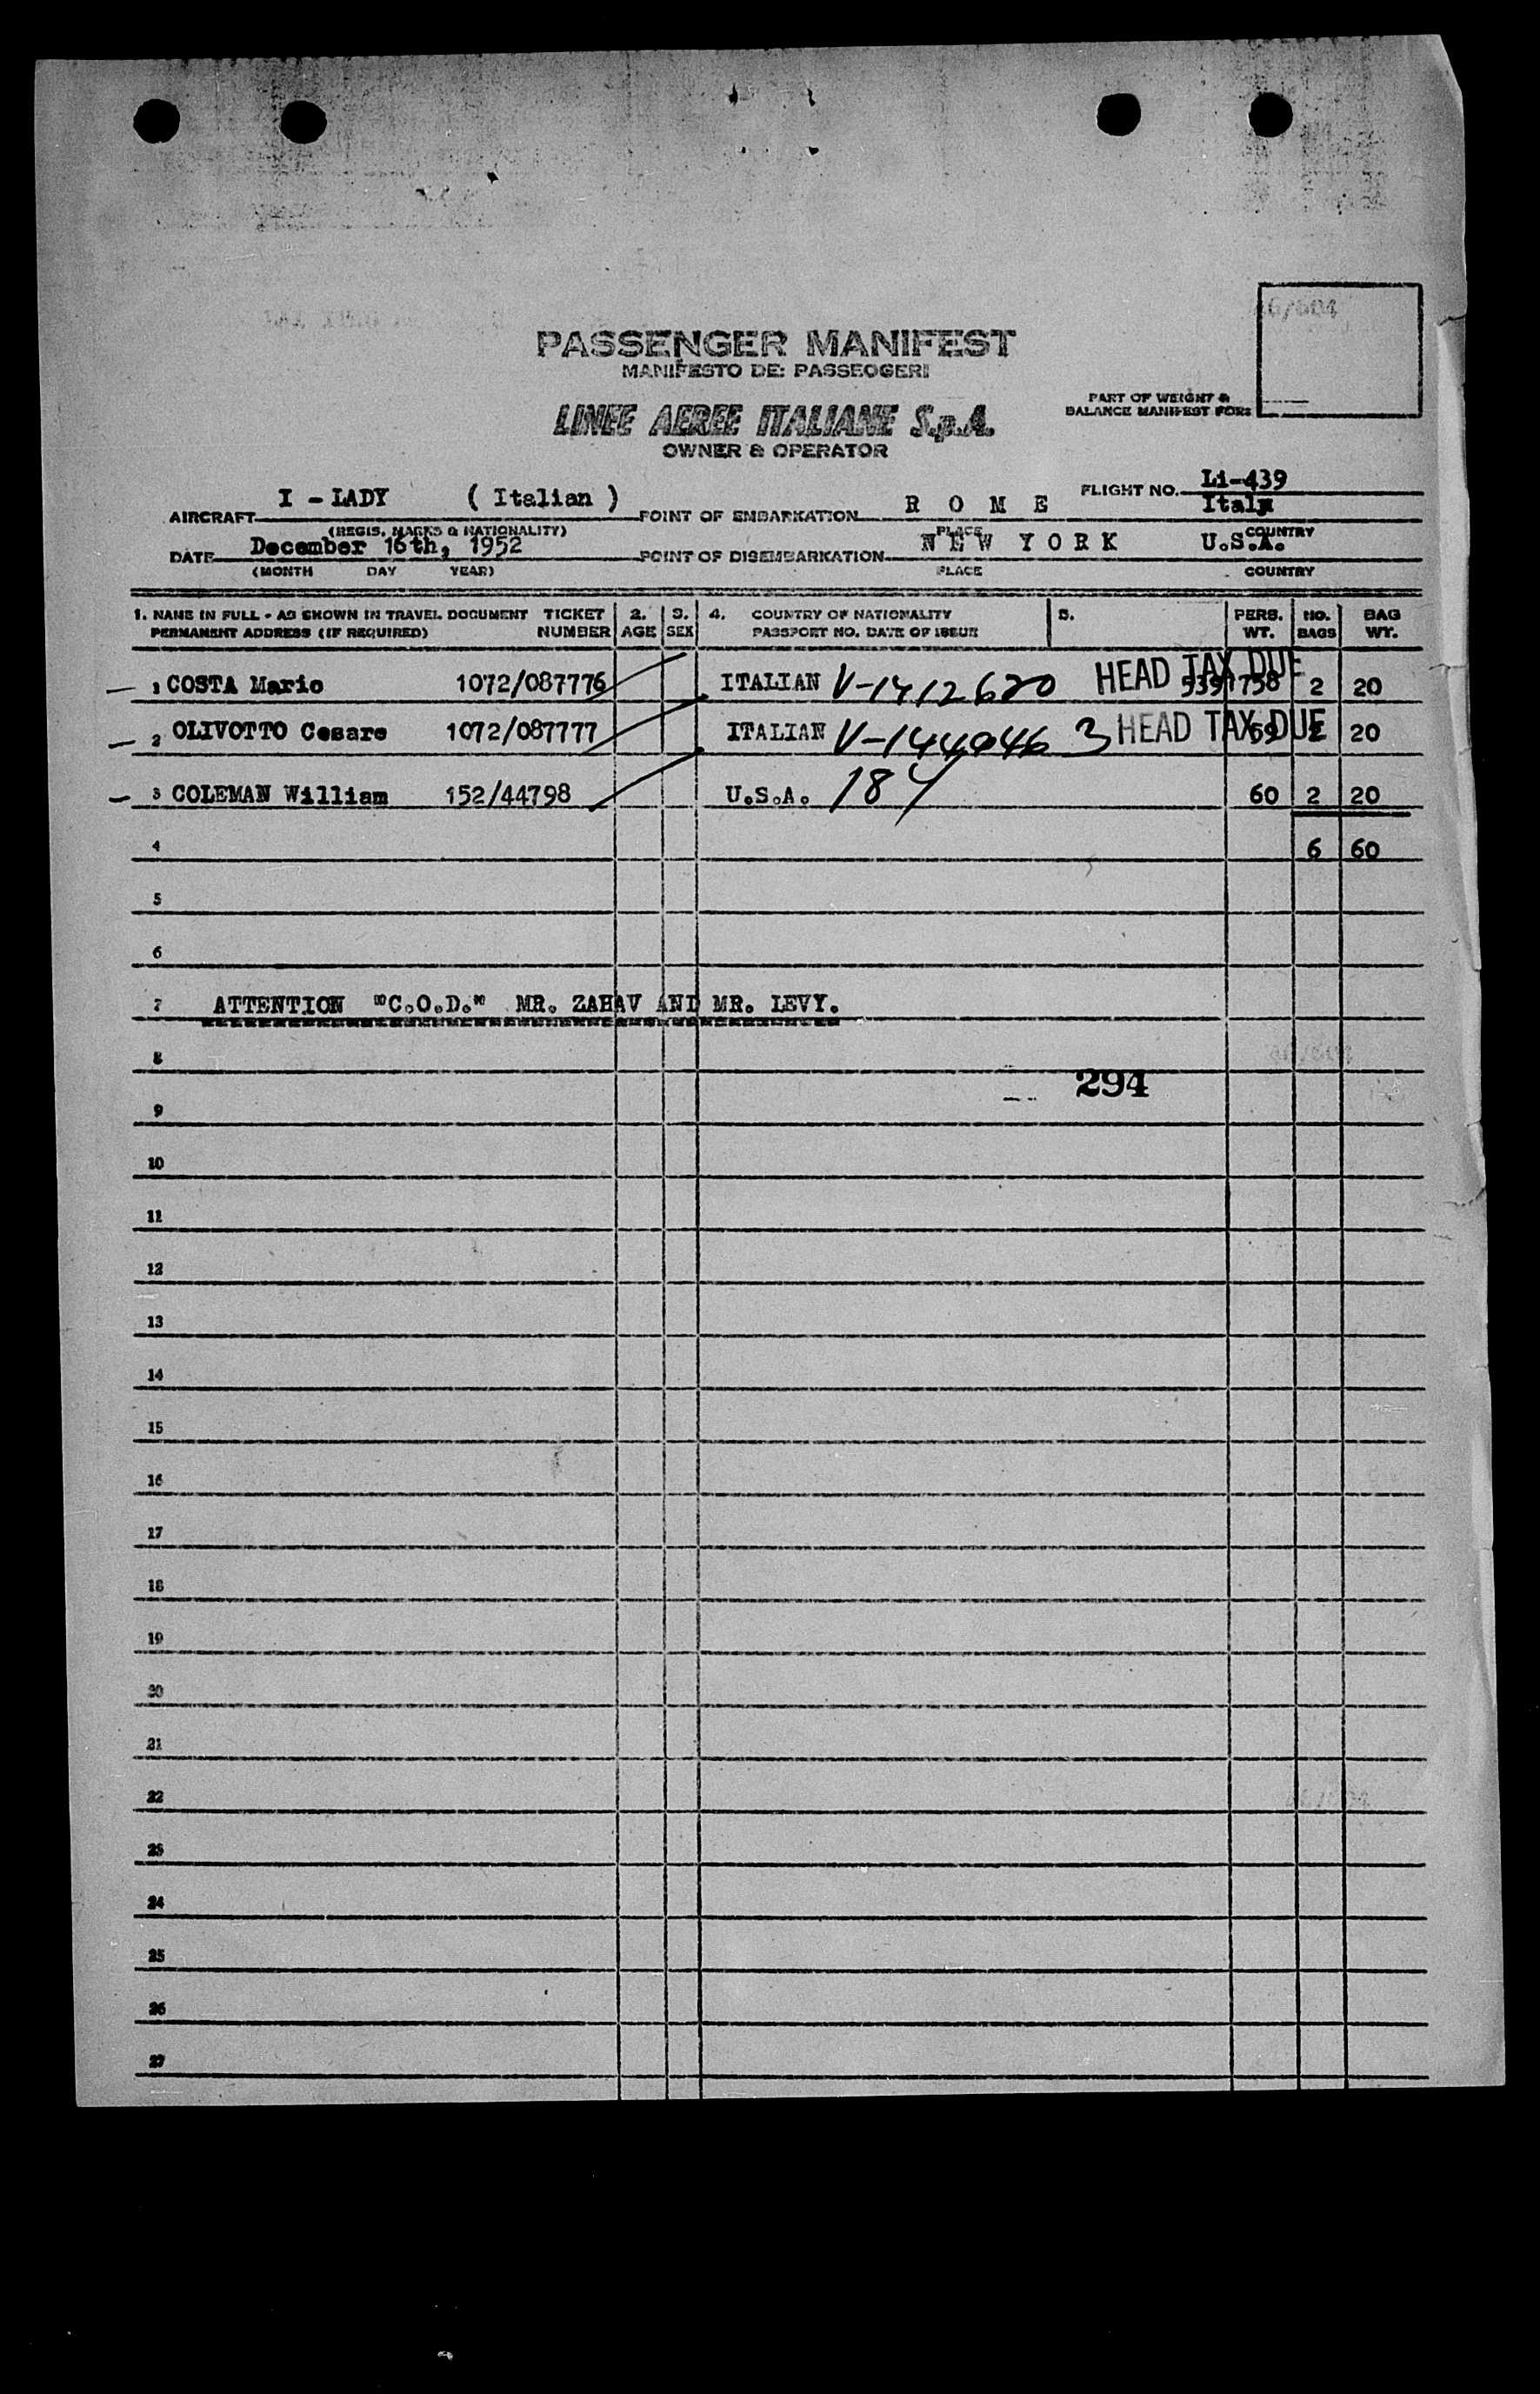 PASSENGER MANIFEST
MANIFESTO DEI PASSEGGERI
LINEE AEREE ITALIANE S.p.A.
OWNER & OPERATOR
PART OF WEIGHT &
BALANCE MANIFEST FORM
FLIGHT NO. Li-439
AIRCRAFT I - LADY ( Italian ) POINT OF EMBARKATION R O M E Italy
(REGIS. MARKS & NATIONALITY) PLACE COUNTRY
DATE December 16th, 1952 POINT OF DISEMBARKATION N E W Y O R K U.S.A.
(MONTH DAY YEAR) PLACE COUNTRY
1. NAME IN FULL - AS SHOWN IN TRAVEL DOCUMENT TICKET 2. 3. 4. COUNTRY OF NATIONALITY 5. PERS. NO. BAG
PERMANENT ADDRESS (IF REQUIRED) NUMBER AGE SEX PASSPORT NO. DATE OF ISSUE WT. BAGS WT.
1 COSTA Mario 1072/087776 ITALIAN V-1412620 HEAD TAX DUE 2 20
2 OLIVOTTO Cesare 1072/087777 ITALIAN V-1440463 HEAD TAX DUE 20
3 COLEMAN William 152/44798 U.S.A. 184 60 2 20
4 6 60
5
6
7 ATTENTION "C.O.D." MR. ZAHAV AND MR. LEVY.
8
294
9
10
11
12
13
14
15
16
17
18
19
20
21
22
23
24
25
26
27